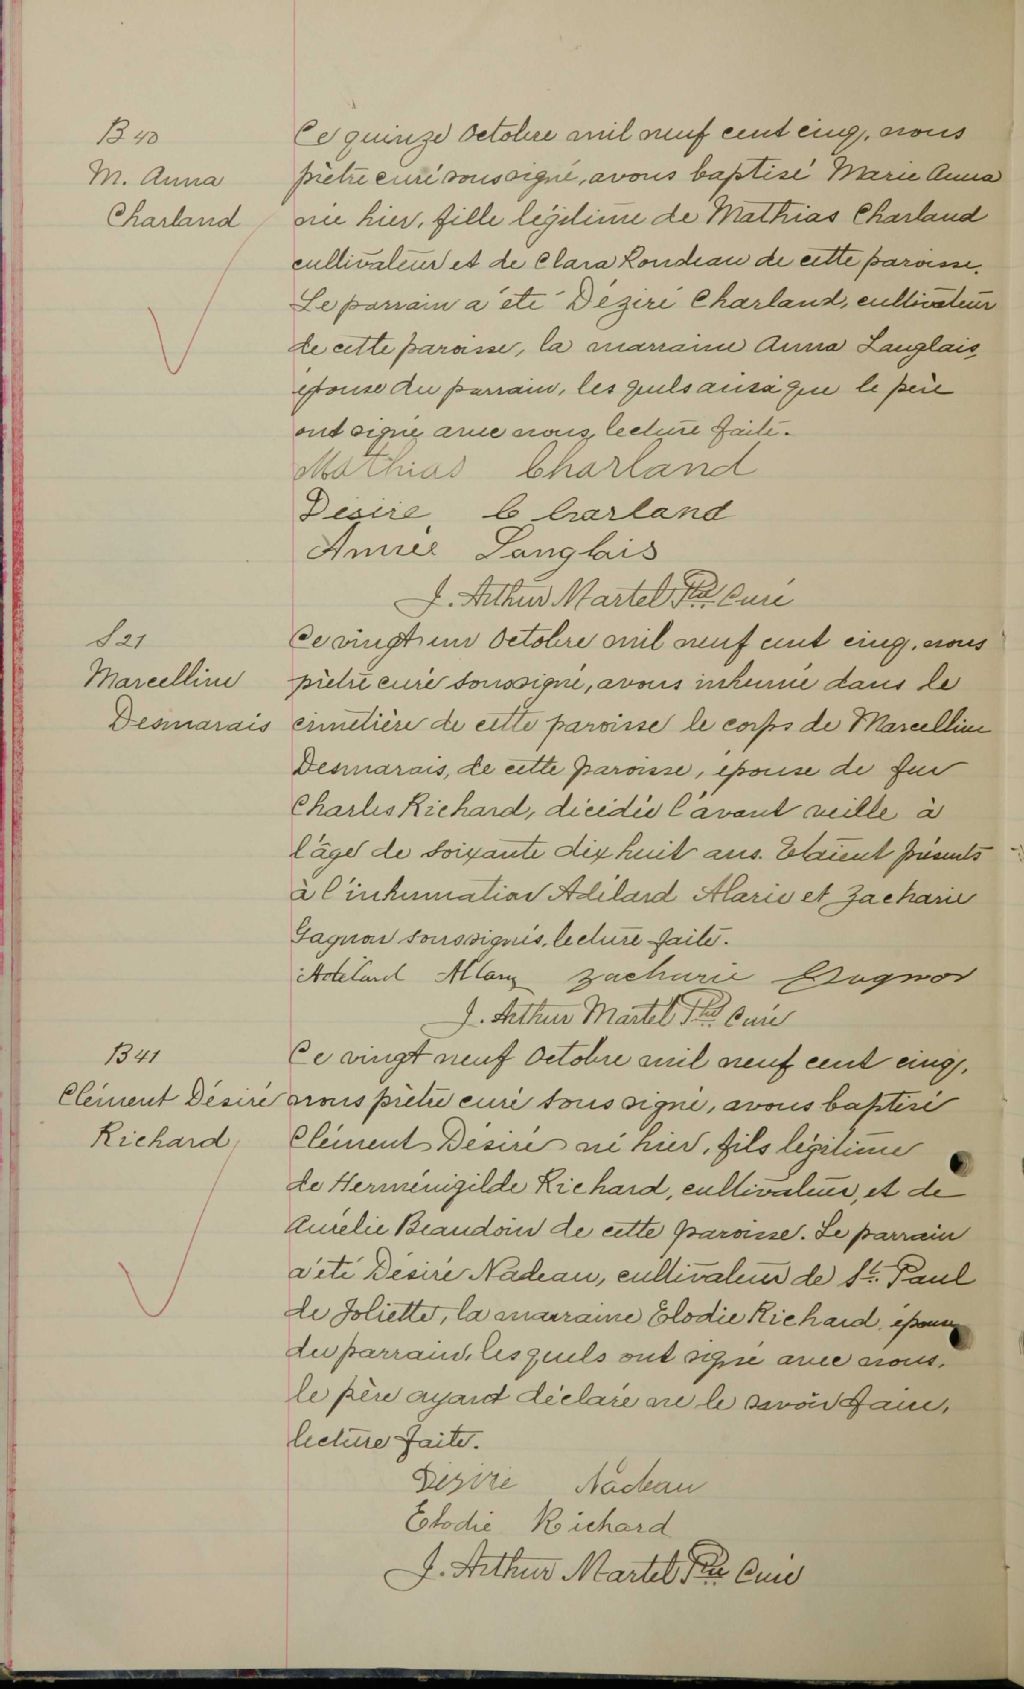 B 40
M. Anna
Charland
Ce quinze Octobre mil neuf cent cinq, nous
prêtre curé soussigné, avons baptisé Marie Anna
née hier, fille légitime de Mathias Charland
cultivateur et de Clara Rondeau de cette paroisse.
Le parrain a été Déziré Charland, cultivateur
de cette paroisse, la marraine Anna Langlais,
épouse du parrain, les quels ainsi que le père
ont signé avec nous, lecture faite.
Mathias Charland
Désiré Charland
Année Langlais
J. Arthur Martel Ptre Curé
S 21
Marcelline
Desmarais
Ce vingt un Octobre mil neuf cent cinq, nous
prêtre curé soussigné, avons inhumé dans le
cimetière de cette paroisse le corps de Marcelline
Desmarais, de cette paroisse, épouse de feu
Charles Richard, décédée l'avant veille à
l'âge de soixante dix huit ans. Etaient présents
à l'inhumation Adélard Alarie et Zacharie
Gagnon soussignés, lecture faite.
Adélard Zacharie Gagnon
J. Arthur Martel Ptre Curé
B 41
Clément Désiré
Richard
Ce vingt neuf Octobre mil neuf cent cinq,
nous prêtre curé soussigné, avons baptisé
Clément Désiré né hier, fils légitime
de Herménigilde Richard, cultivateur, et de
Aurélie Beaudoin de cette paroisse. Le parrain
a été Désiré Nadeau, cultivateur de St. Paul
de Joliette, la marraine Elodie Richard, épouse
du parrain, lesquels ont signé avec nous,
le père ayant déclaré ne le savoir faire,
lecture faite.
Désiré Nadeau
Elodie Richard
J. Arthur Martel Ptre Curé